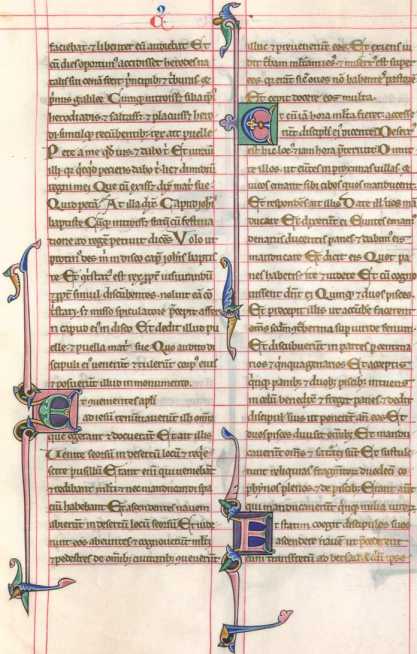 faciebat ⁊ libenter eū audiebat Et
cū dies oportun' accidisset herodes na
talis sui cenā fecit pͥncipib; ⁊ tͥbunis ⁊
pͥmis galilee Cumq; introisset filia ip̄i'
herodiadis ⁊ saltasset ⁊ placuisset hero
di simulq; recūbentib; rex ait puelle
Pete a me qd uis ⁊ dabo tͥ Et iurauit
illi qꝛ quicqd petieris dabo tͥ licet dimidiū
regni mei Que cū exisset dix̄ matri sue
Quid petā At illa dix̄ Caput ioh̄is
baptiste Cūq; introisset statī cū festina
tione ad regē petiuit dicēs Volo ut
protin' des mͥ in disco caput ioh̄is baptis
te Et cōtristat' est rex ppͭ iusiurandū
⁊ ppͭ simul discūbentes noluit eā cō
tristari s; misso spiculatore precepit afferri
caput ei' in disco Et
elle ⁊ puella matri sue Quo audito di
scipuli ei' uenerūt ⁊ tulerūt corp' ei'
⁊ posuerūt illud in monumento
Et uenientes apl̄i
ad iesū renuntiauerūt illi omnia
que egerant ⁊ docuerāt Et ait illis
Uenite seorsū in desertū locū ⁊ reqe
scite pusillū Erant enī qui ueniebāt
⁊ redibant multi ⁊ nec manducandi spa
ciū habebant Et ascendentes in nauem
abierūt in desertū locū seorsū Et uide
runt eos abeuntes ⁊ cognouerūt multi
⁊ pedestres de omib; ciuitatib; c
illuc ⁊ preuenerunt eos Et exiens ui
dit turbam multam iesus ⁊ misert' est super
eos qꝛ erant sic' oues nō habentes pastorē
Et cepit docere eos multa
Et cū iam hora multa fieret accesserūt
discipli ei' dicentes Desert'
est hic loc' ⁊ iam hora preteriit Dimit
te illos ut euntes in proximas uillas ⁊
uicos emant sibi cibos quos manducent
Et respondens ait illis Date illis uos mā
ducare Et dixerunt ei Euntes emam'
denariis ducentis panes ⁊ dabim' eis
manducare Et dicit eis Quot pa
nes habetis ite ⁊ uidete Et cū cogno
uissent dicūt ei Quinq; ⁊ duos pisces
Et precepit illis ut accūbere facerent
om̄s scdm cōtubernia sup uiride fenum
Et discubuerūt in partes p centena
rios ⁊ quinquagenarios Et acceptis
qinq; panib; ⁊ duob; piscib; intuens
in celū benedix̄ ⁊ fregit panes ⁊ dedit
discipul' suis ut ponerent an̄ eos Et
duos pisces diuisit omib; Et mandu
cauerūt om̄s ⁊ saturati sunt Et sustule
runt reliquias fragmentorū duodecī co
phynos plenos ⁊ de piscib; Erant autē
qui manducauerunt quinq; milia uirorū
Et statim coegit discipulos suos
ascendere nauē ut p̄cederent
eum trans fretū ad betsaidā dū ipse